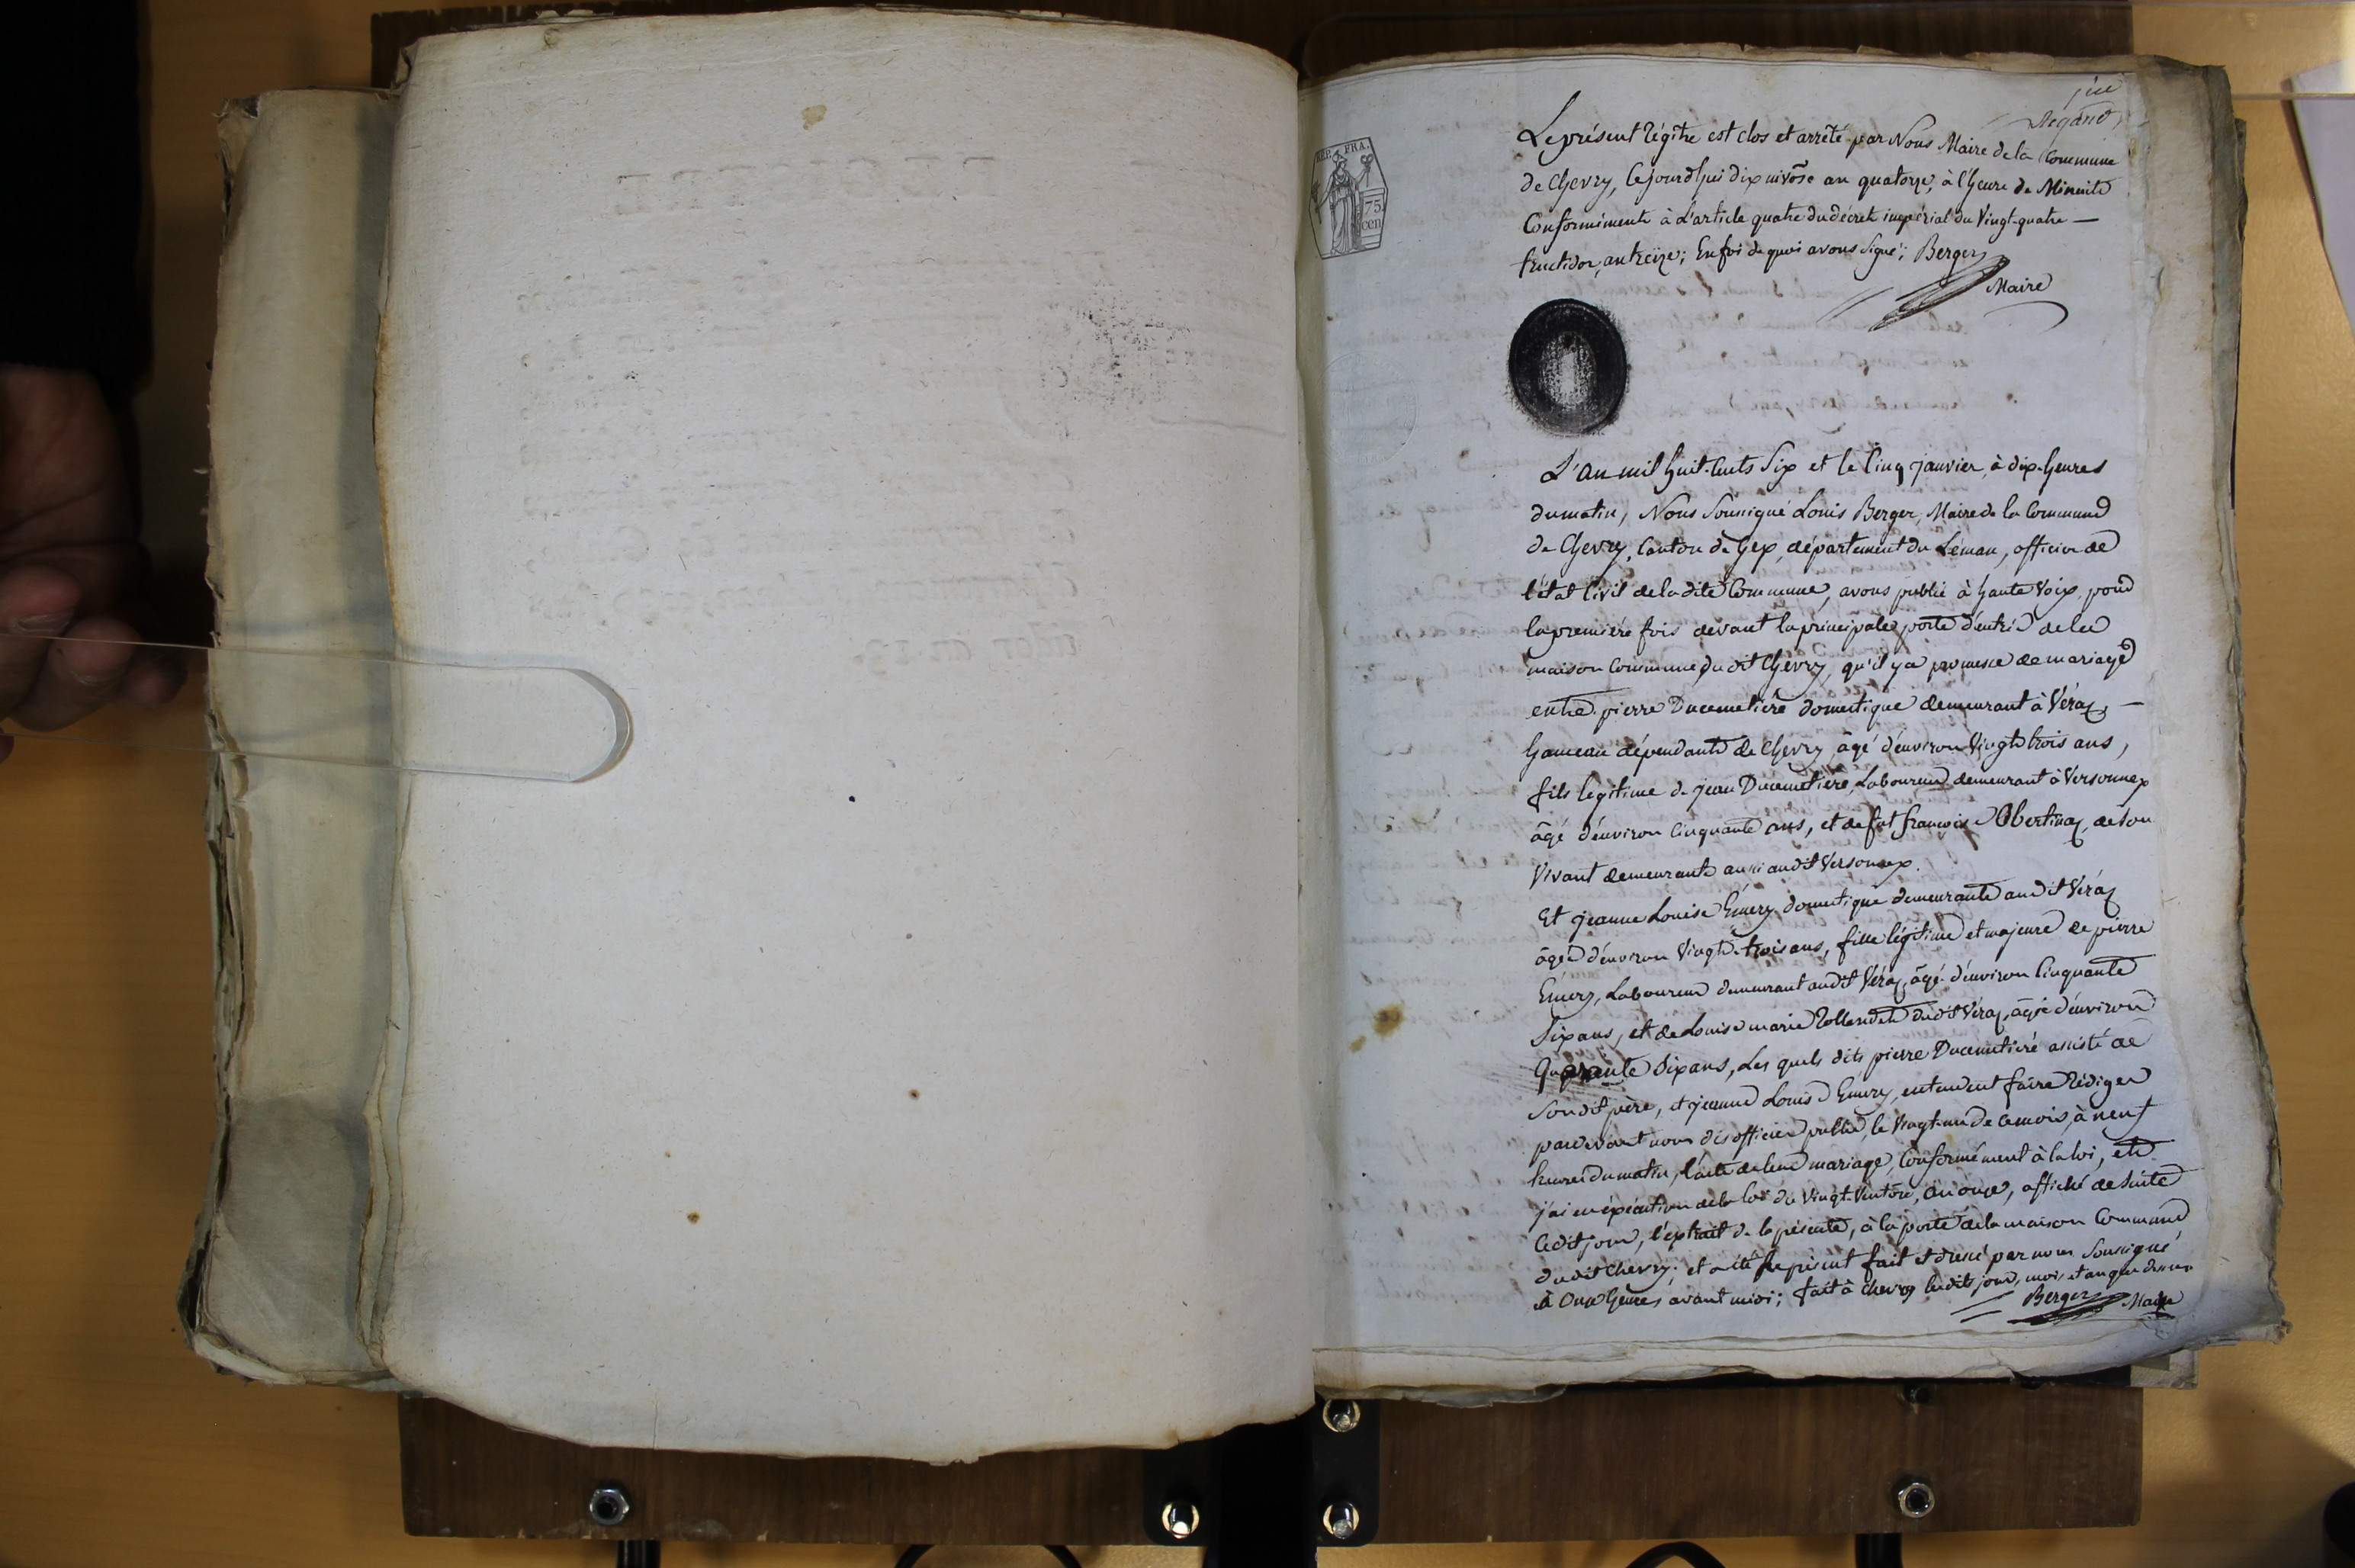 REP. FRA.
75
cen
Le présent régitre est clos et arrêté par Nous Maire de la Commune
de Chevry, Cejourd'hui dix nivôse an quatorze, à l'heure de Minuite
Conformémente à L'article quatre du décret impérial du Vingt-quatre —
fructidor, an treize; En foi de quoi avons signé; Berger
Maire
L'an mil huit-Cents Six et le Cinq janvier, à dix-heures
du matin, Nous Soussigné Louis Berger, Maire de la Commune
de Chevry, Canton de Gex, département du Léman, officier de
l'état Civil de la dite Commune, avons publié à haute Voix, pour
la première fois devant la principale porte d'entrée de la
maison Commune dudit Chevry, qu'il y a promesse de mariage
entre pierre Ducimetière domestique demeurant à Véraz, —
hameau dépendante de Chevry, âgé d'environ Vingt trois ans,
fils légitime de jean Ducimetière, Laboureur demeurant à Versonnex
âgé d'environ Cinquante ans, et de fut françoise Obertinaz, de son
Vivant demeurante aussi audit Versonnex.
Et jeanne Louise Emery domestique demeurante audit Véraz
âgée d'environ Vingt-trois ans, fille légitime et majeure de pierre
Emery, Laboureur demeurant audit Véraz, âgé d'environ Cinquante
Six ans, et de Louise marie dudit Véraz, âgée d'environ
Quarante Six ans, Les quels dits pierre Ducimetière assisté de
Son dit père, et jeanne Louise Emery, entendent faire rédiger
pardevant nous dis officier public, le Vingt-un de ce mois, à neuf
heures du matin, l'acte de leur mariage, Conformément à la loi, et
j'ai en exécution de la loi du Vingt Ventôse, an onze, affiché de suite
Cedit jour, l'extrait de la présente, à la porte de la maison Commune
dudit Chevry; et a été le présent fait et dressé par nous Soussigné
à Onze heures avant midi; fait à Chevry lesdits jour, mois et an que dessus
Berger Maire